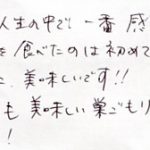 人生の中で一番感
を食べたのは初めて
た。美味しいです!!
も美味しい巣ごもり
!